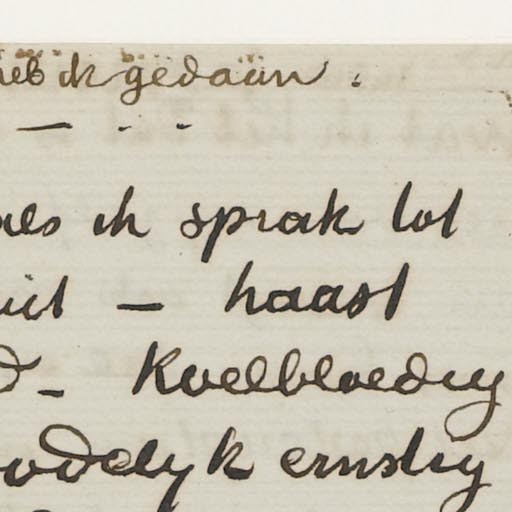 heb ik gedaan.
— . - -
als ik sprak tot
uit — haast
D - Koelbloedig
oodelyk ernstig